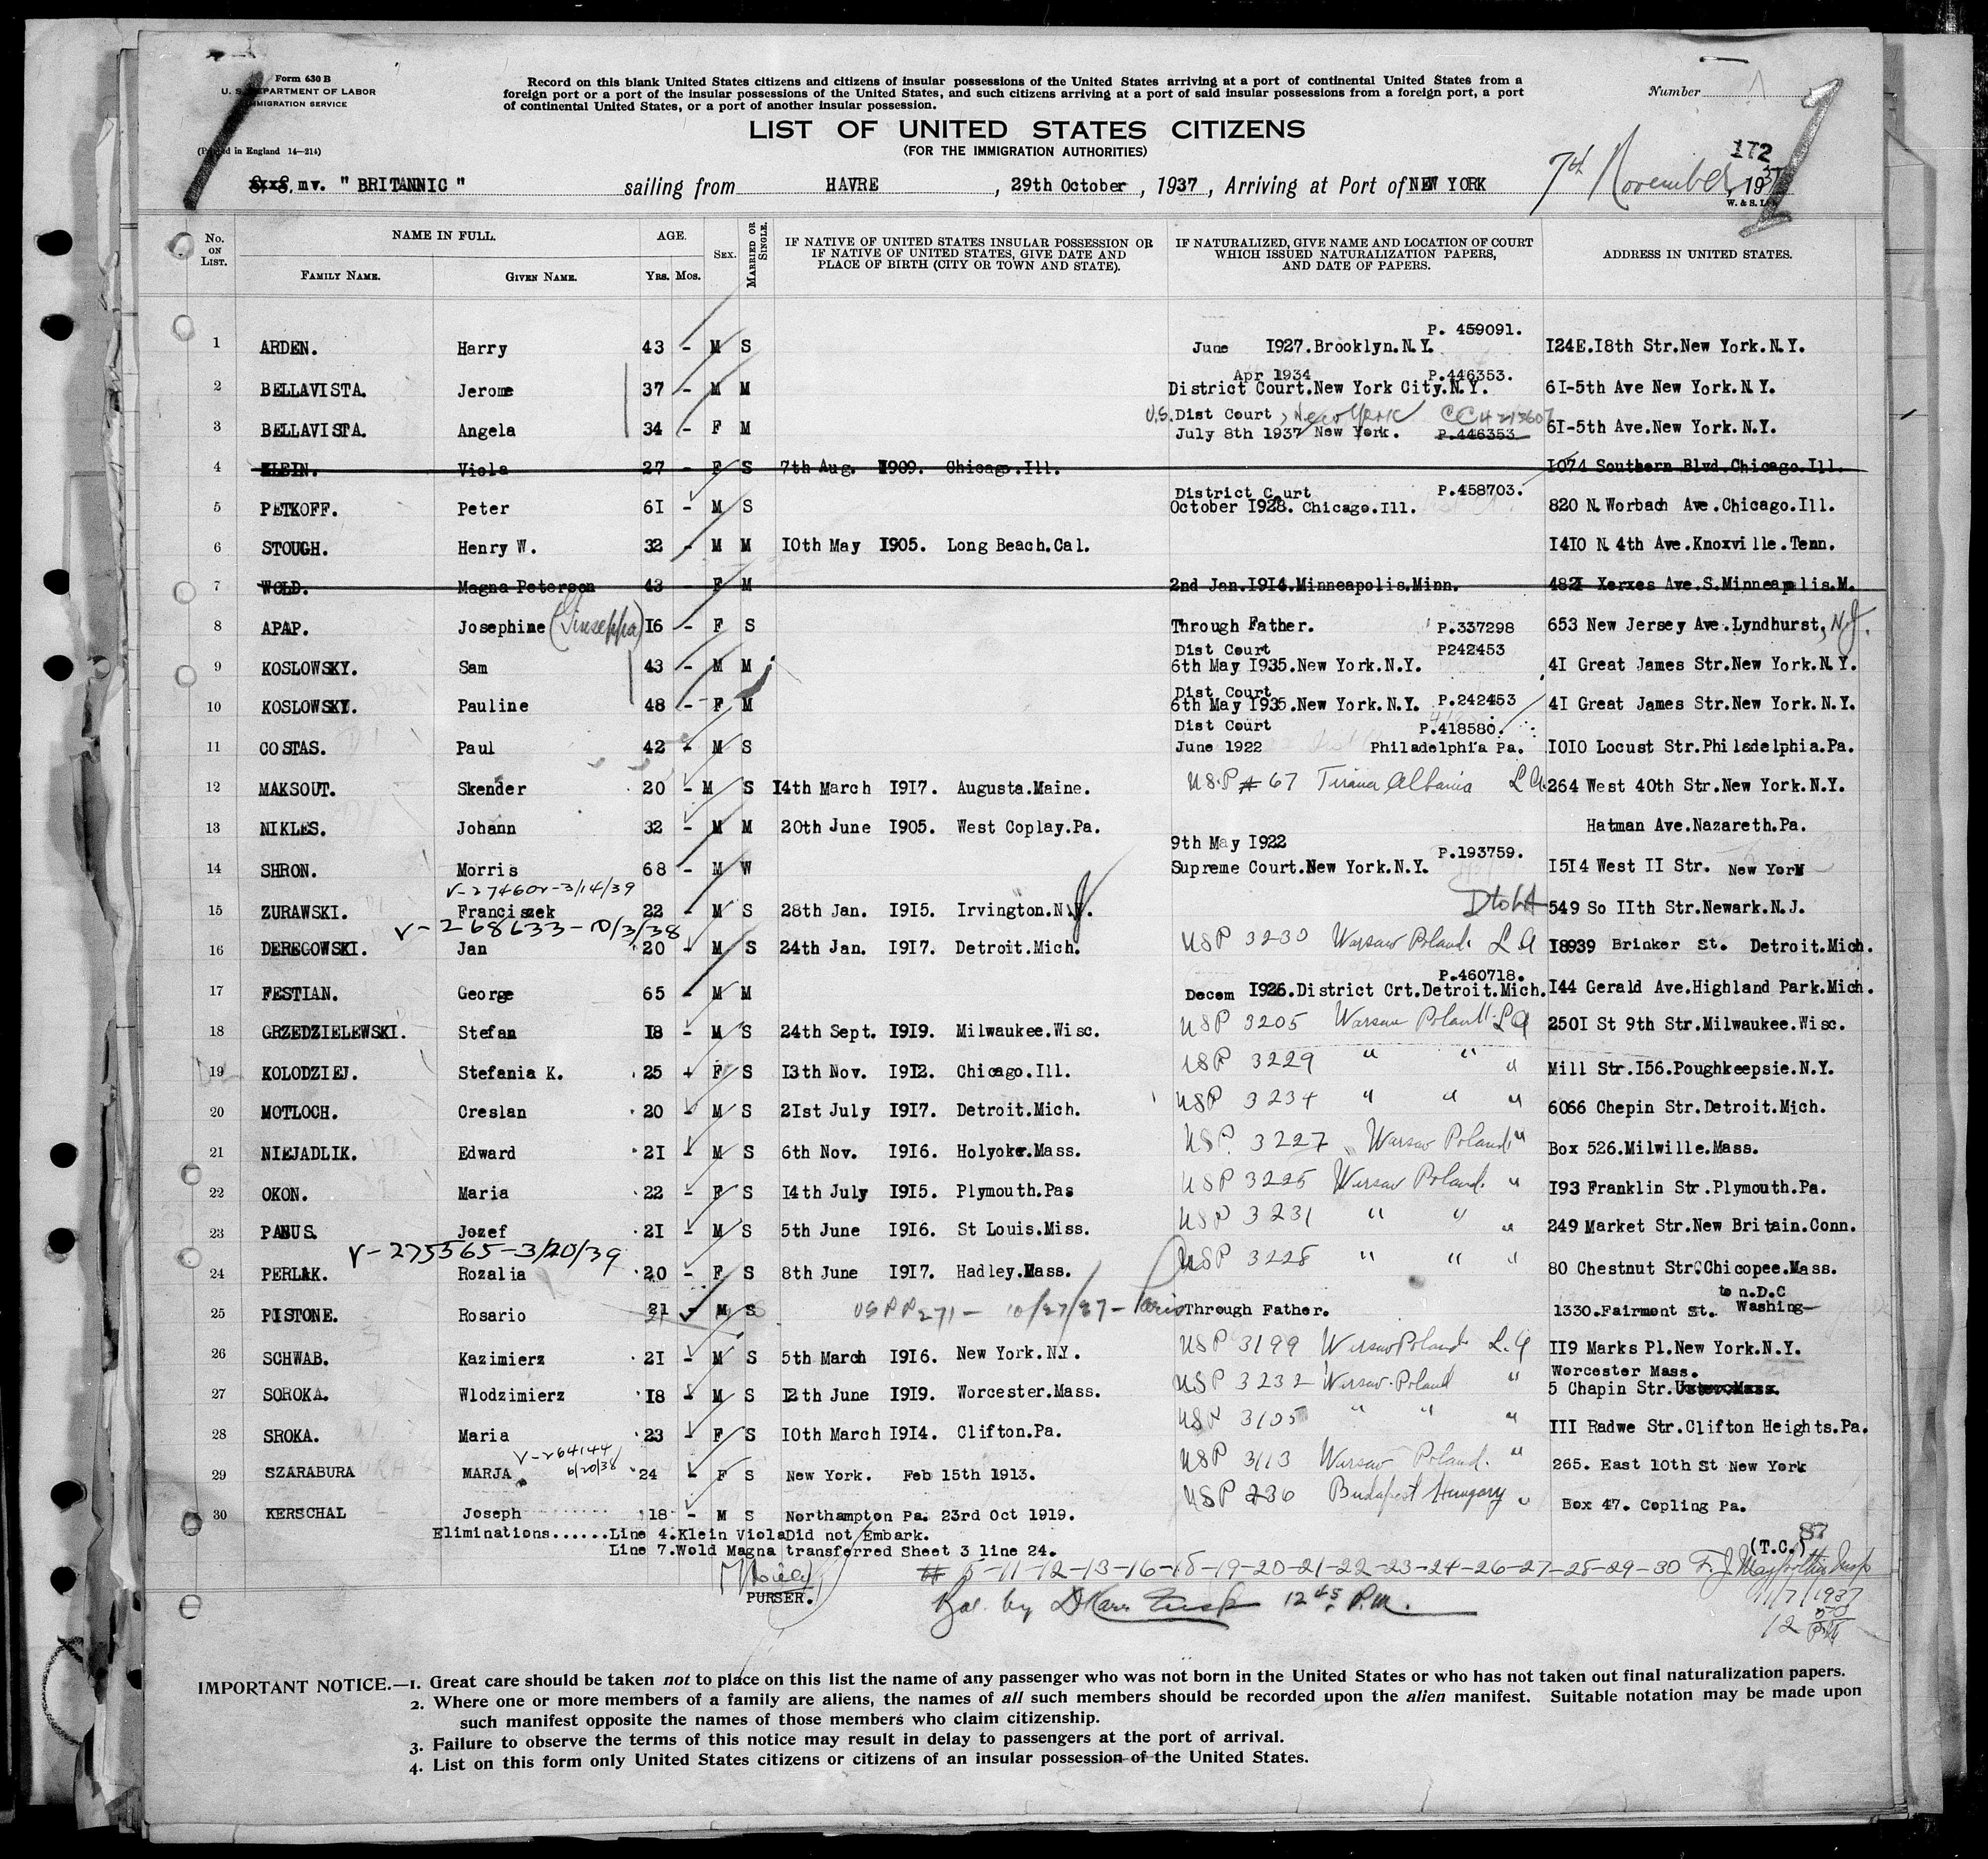 Form 630 B
U. S. DEPARTMENT OF LABOR
IMMIGRATION SERVICE
(Printed in England 14—214)
Record on this blank United States citizens and citizens of insular possessions of the United States arriving at a port of continental United States from a
foreign port or a port of the insular possessions of the United States, and such citizens arriving at a port of said insular possessions from a foreign port, a port
of continental United States, or a port of another insular possession.
Number
LIST OF UNITED STATES CITIZENS
(FOR THE IMMIGRATION AUTHORITIES)
172
mv. " BRITANNIC " sailing from HAVRE , 29th October , 1937 , Arriving at Port of NEW YORK 7th November , 1937
W. & S. Ltd.
No. ON LIST. NAME IN FULL. AGE. SEX. MARRIED OR SINGLE. IF NATIVE OF UNITED STATES INSULAR POSSESSION OR IF NATIVE OF UNITED STATES, GIVE DATE AND PLACE OF BIRTH (CITY OR TOWN AND STATE). IF NATURALIZED, GIVE NAME AND LOCATION OF COURT WHICH ISSUED NATURALIZATION PAPERS, AND DATE OF PAPERS. ADDRESS IN UNITED STATES.
FAMILY NAME. GIVEN NAME. YRS. MOS.
P. 459091.
1 ARDEN. Harry 43 - M S June 1927.Brooklyn.N.Y. 124E.18th Str.New York.N.Y.
Apr 1934 P.446353.
2 BELLAVISTA. Jerome 37 - M M District Court.New York City.N.Y. 61-5th Ave New York.N.Y.
U.S. Dist Court, New York
3 BELLAVISTA. Angela 34 - F M July 8th 1937 New York. P.446353 61-5th Ave.New York.N.Y.
4 KLEIN. Viola 27 - F S 7th Aug. 1909. Chicago.Ill. 1074 Southern Blvd.Chicago.Ill.
District Court P.458703.
5 PETKOFF. Peter 61 - M S October 1928. Chicago.Ill. 820 N.Worbach Ave.Chicago.Ill.
6 STOUGH. Henry W. 32 - M M 10th May 1905. Long Beach.Cal. 1410 N.4th Ave.Knoxville.Tenn.
7 WOLD. Magna Peterson 43 - F M 2nd Jan.1914.Minneapolis.Minn. 4821 Xerxes Ave.S.Minneapolis.M.
8 APAP. Josephine (Giuseppa) 16 - F S Through Father. P.337298 653 New Jersey Ave.Lyndhurst, N.J.
Dist Court P242453
9 KOSLOWSKY. Sam 43 - M M 6th May 1935.New York.N.Y. 41 Great James Str.New York.N.Y.
Dist Court
10 KOSLOWSKY. Pauline 48 - F M 6th May 1935.New York.N.Y. P.242453 41 Great James Str.New York.N.Y.
Dist Court P.418580.
11 COSTAS. Paul 42 - M S June 1922 Philadelphia Pa. 1010 Locust Str.Philadelphia.Pa.
12 MAKSOUT. Skender 20 - M S 14th March 1917. Augusta.Maine. USP # 67 Tirana Albania L A 264 West 40th Str.New York.N.Y.
13 NIKLES. Johann 32 - M M 20th June 1905. West Coplay.Pa. Hatman Ave.Nazareth.Pa.
9th May 1922 P.193759.
14 SHRON. Morris 68 - M W Supreme Court.New York.N.Y. 1514 West 11 Str. New York
V-274602-3/14/39
15 ZURAWSKI. Franciszek 22 - M S 28th Jan. 1915. Irvington.N.J. 549 So 11th Str.Newark.N.J.
V-268633-10/3/38
16 DEREGOWSKI. Jan 20 - M S 24th Jan. 1917. Detroit.Mich. USP 3230 Warsaw Poland. L A 18939 Brinker St. Detroit.Mich.
P.460718.
17 FESTIAN. George 65 - M M Decem 1926.District Crt.Detroit.Mich. 144 Gerald Ave.Highland Park.Mich.
18 GRZEDZIELEWSKI. Stefan 18 - M S 24th Sept. 1919. Milwaukee.Wisc. USP 3205 Warsaw Poland L A 2501 St 9th Str.Milwaukee.Wisc.
19 KOLODZIEJ. Stefania K. 25 - F S 13th Nov. 1912. Chicago.Ill. USP 3229 " " " Mill Str.156.Poughkeepsie.N.Y.
20 MOTLOCH. Creslan 20 - M S 21st July 1917. Detroit.Mich. USP 3234 " " " 6066 Chepin Str.Detroit.Mich.
21 NIEJADLIK. Edward 21 - M S 6th Nov. 1916. Holyoke.Mass. USP. 3227 Warsaw Poland. " Box 526.Milwille.Mass.
22 OKON. Maria 22 - F S 14th July 1915. Plymouth.Pas USP 3225 Warsaw Poland. " 193 Franklin Str.Plymouth.Pa.
23 PANUS. Jozef 21 - M S 5th June 1916. St Louis.Miss. USP 3231 " " " 249 Market Str.New Britain.Conn.
V-275565-3/20/39
24 PERLAK. Rozalia 20 - F S 8th June 1917. Hadley.Mass. USP 3228 " " " 80 Chestnut Str.Chicopee.Mass.
to n.D.C
25 PISTONE. Rosario 21 - M S USPP271- 10/27/37- Paris Through Father. 1330.Fairmont St. Washing-
26 SCHWAB. Kazimierz 21 - M S 5th March 1916. New York.N.Y. USP 3199 Warsaw Poland L.A 119 Marks Pl.New York.N.Y.
Worcester Mass.
27 SOROKA. Wlodzimierz 18 - M S 12th June 1919. Worcester.Mass. USP 3232 Warsaw Poland " 5 Chapin Str.
28 SROKA. Maria 23 - F S 10th March 1914. Clifton.Pa. USP 3105 " " " 111 Radwe Str.Clifton Heights.Pa.
V-264144
6/20/38
29 SZARABURA MARJA 24 - F S New York. Feb 15th 1913. USP 3113 Warsaw Poland. " 265. East 10th St New York
30 KERSCHAL Joseph 18 - M S Northampton Pa. 23rd Oct 1919. USP 236 Budapest Hungary " Box 47. Copling Pa.
Eliminations......Line 4.Klein Viola Did not Embark.
Line 7.Wold Magna transferred Sheet 3 line 24.
(T.C.)
# 5-11-12-13-16-18-19-20-21-22-23-24-26-27-28-29-30
PURSER.
by 12 45 P.M.
11/7/1937
IMPORTANT NOTICE.—1. Great care should be taken not to place on this list the name of any passenger who was not born in the United States or who has not taken out final naturalization papers.
2. Where one or more members of a family are aliens, the names of all such members should be recorded upon the alien manifest. Suitable notation may be made upon
such manifest opposite the names of those members who claim citizenship.
3. Failure to observe the terms of this notice may result in delay to passengers at the port of arrival.
4. List on this form only United States citizens or citizens of an insular possession of the United States.